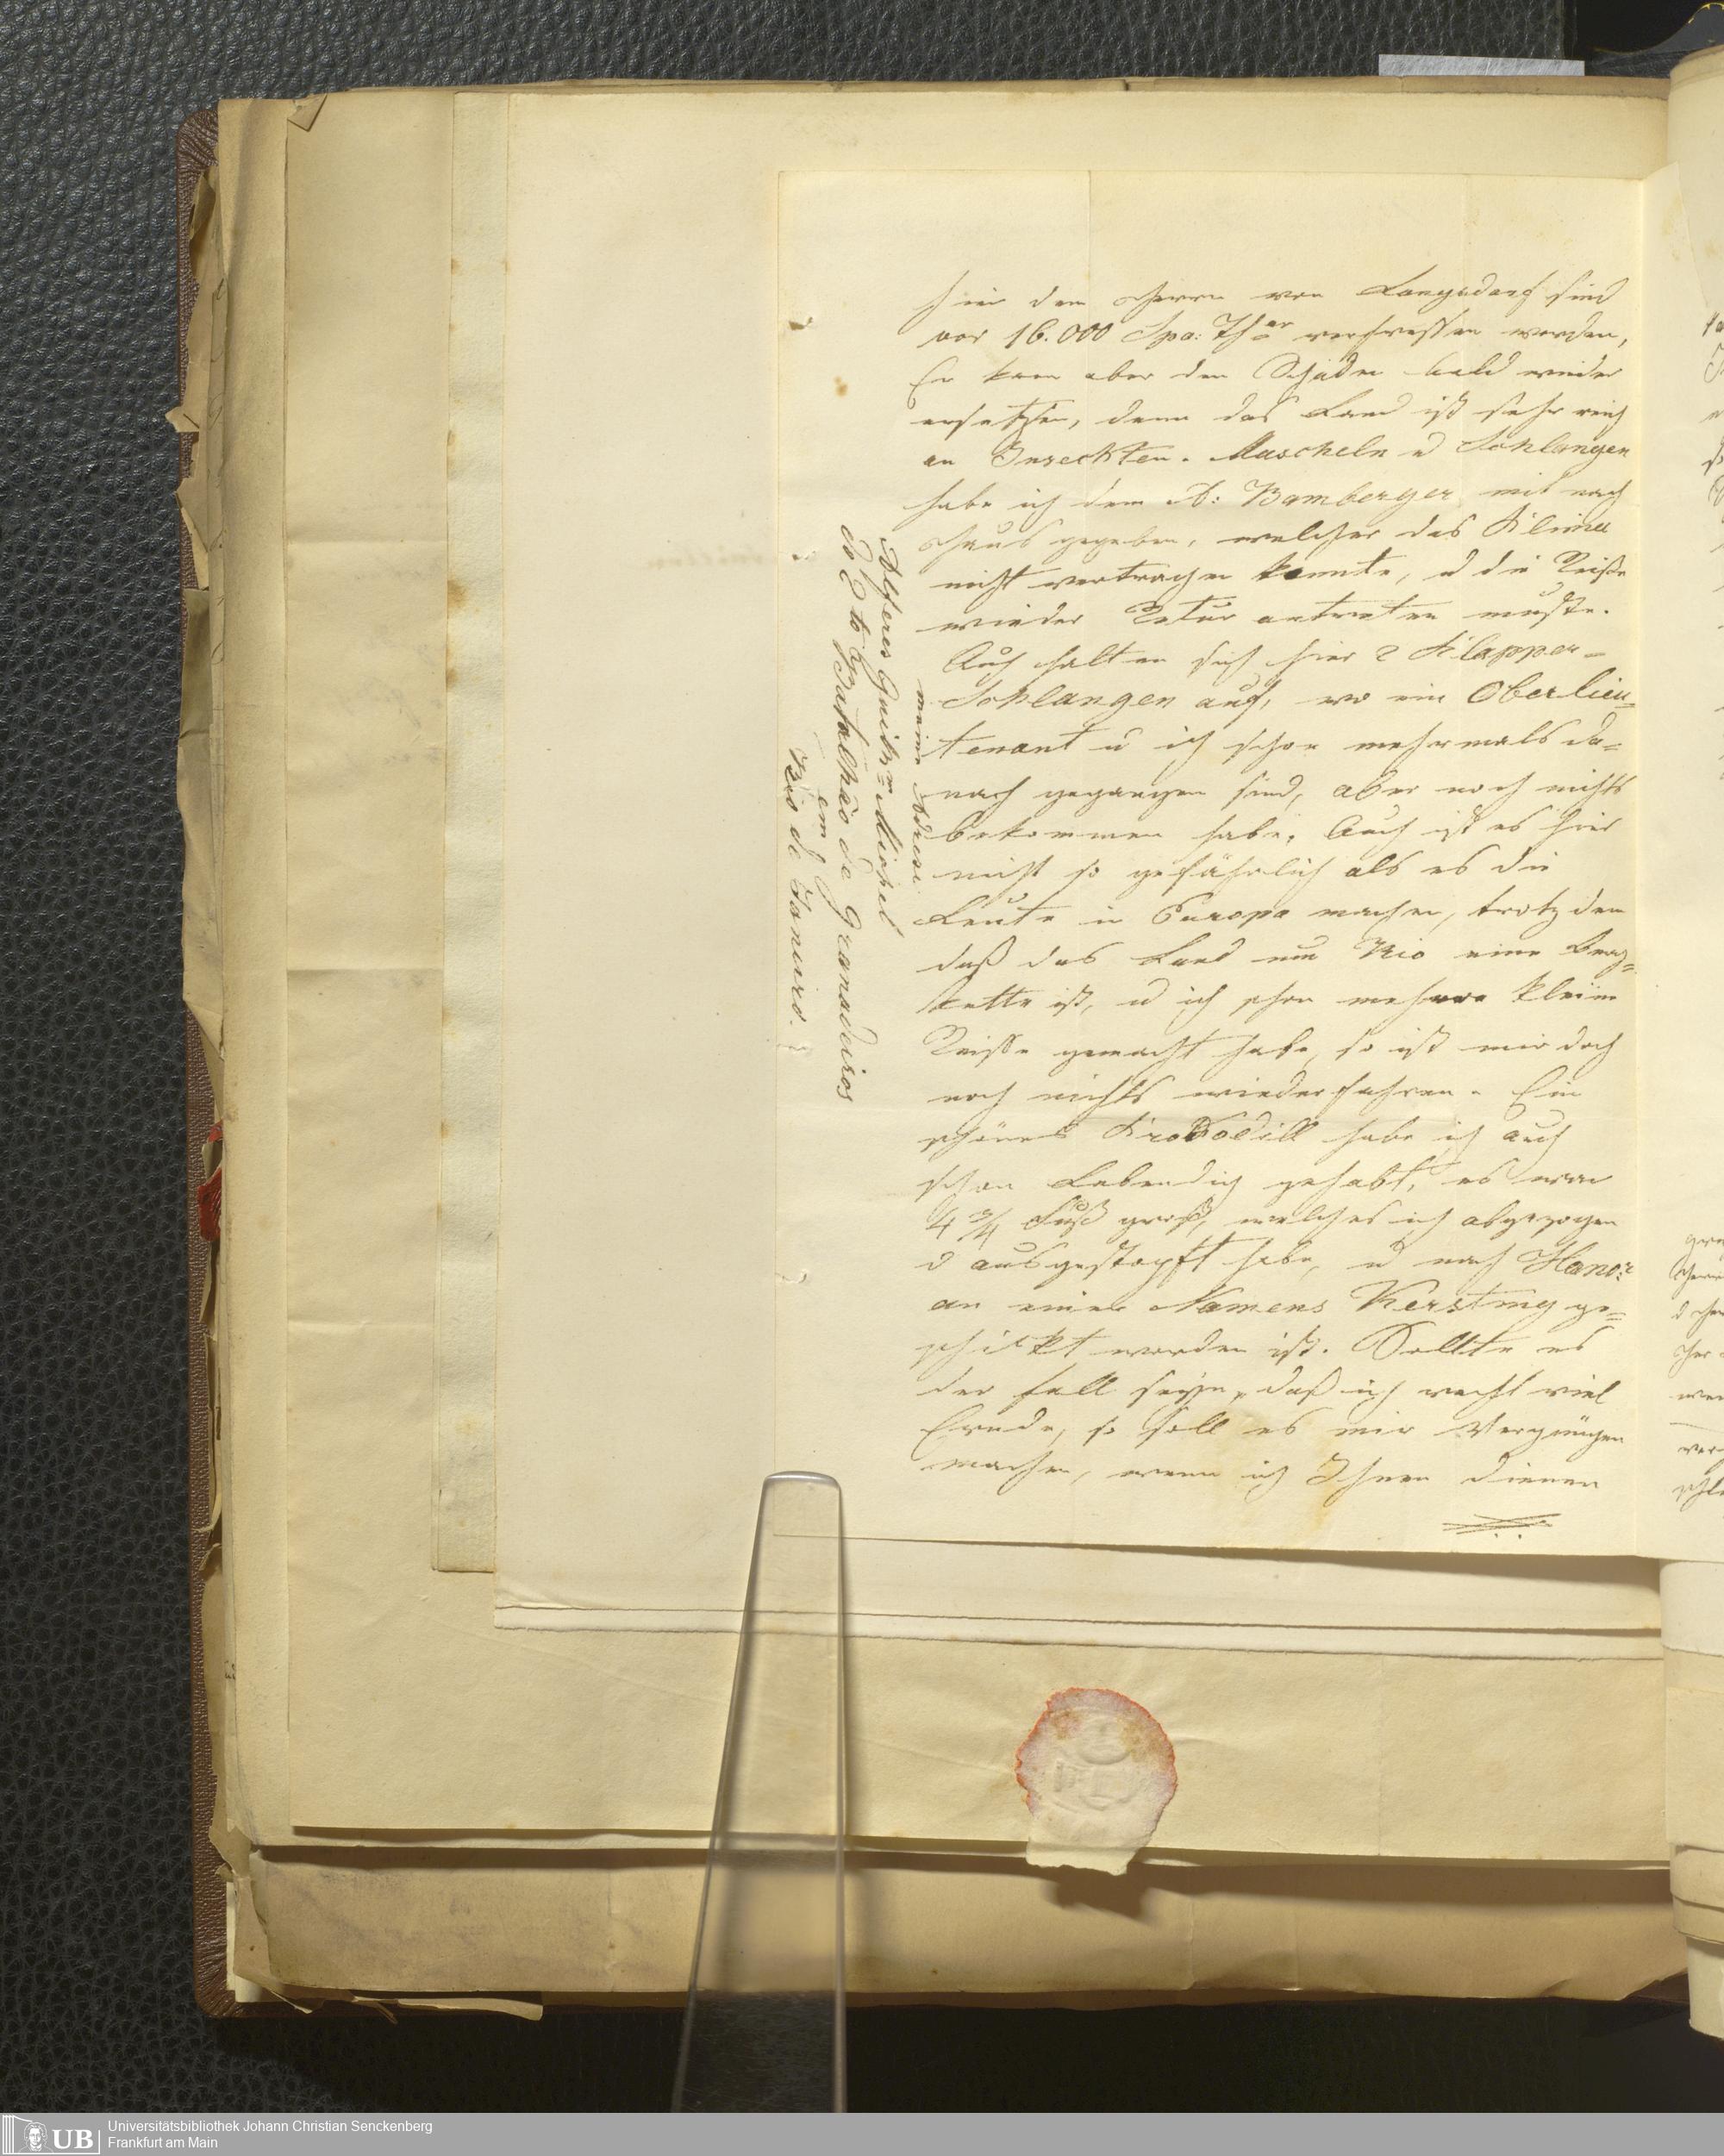 hier dem Herrn von Langsdorf sind
vor 16.000 Spa: Thlr verfressen worden,
Er kann aber den Schaden bald wieder
ersetzen, denn das Land ist sehr reich
an Insecktten. Muscheln u Schlangen
habe ich dem D: Bamberger mit nach
Haus gegeben, welcher das Klima
nicht vertragen konnte, u die Reise
wieder Retur antreten muste.
Auch halten sich hier 2 Klapper-
Schlangen auf, wo ein Oberlieu-
tenant u ich schon mehrmals da-
nach gegangen sind, aber noch nichts
bekommen habe. Auch ist es hier
nicht so gefährlich als es die
Leute in Europa machen, trotz dem
daß das Land um Rio eine Berg-
kette ist, u ich schon mehrere kleine
Reisse gemacht habe, so ist mir doch
noch nichts wiederfahren. Ein
schönes Krokodill habe ich auch
schon Lebendig gehabt, es war
4 3/4 Fuß groß, welches ich abgezogen
u ausgestopft habe, u nach Hanor:
an einen Namens Kersting ge-
schickt worden ist. Sollte es
der Fall seyn, daß ich recht viel
so soll es mir Vergnügen
machen, wenn ich Ihnen dienen
meine Adresse.
Alferes Michel
do 2to Batalhão de Granadeiros
em
Rio de Janeiro.
Universitätsbibliothek Johann Christian Senckenberg
Frankfurt am Main
UB